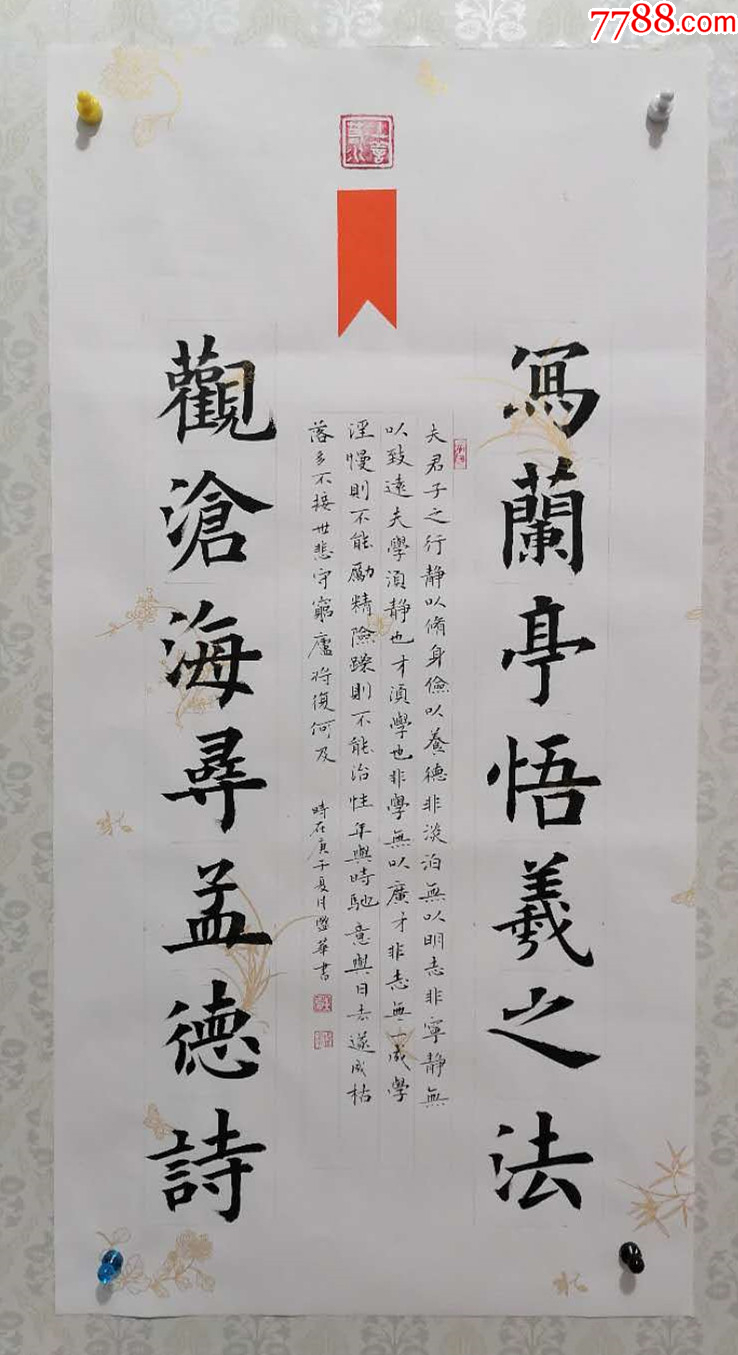 7788.com
寫蘭亭悟羲之法
夫君子之行静以脩身儉以養德非淡泊無以明志非寧静無
以致遠夫學須静也才須學也非學無以廣才非志無以成學
淫慢則不能勵精險躁則不能治性年與時馳意與日去遂成枯
落多不接世悲守窮廬将復何及
時在庚子夏月盛華書
觀滄海尋孟德詩